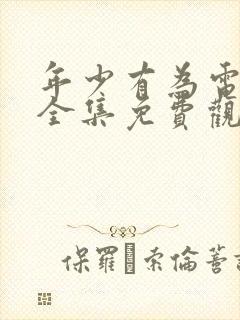 年少有為電
全集免費觀
保羅 索倫蓄